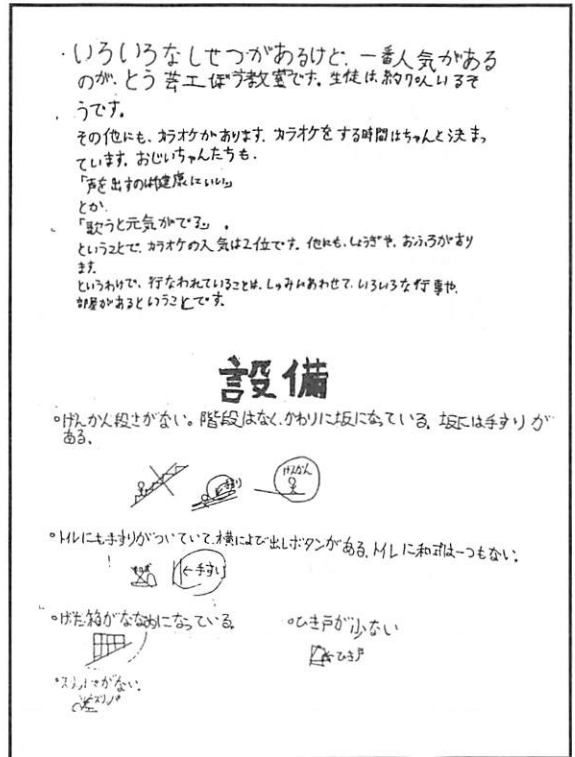 ・いろいろなしせつがあるけど、一番人気がある
のが、とう芸工ぼう教室です。生徒は約70人いるそ
うです。
その他にも、カラオケがあります。カラオケをする時間はちゃんと決まっ
ています。おじいちゃんたちも、
「声を出すのは健康にいい」
とか、
「歌うと元気がでる」。
ということで、カラオケの人気は2位です。他にも、しょうぎや、おふろがあり
ます。
というわけで、行なわれていることは、しゅみにあわせて、いろいろな行事や、
部屋があるということです。
設備
○げんかん段さがない。階段はなく、かわりに坂になっている。坂には手すりが
ある。
手すり
げんかん
○トイレにも手すりがついていて、横によび出しボタンがある。トイレに和式は一つもない。
←手すり
○げた箱がななめになっている。
○ひき戸が少ない
←ひき戸
○スリッパがない。
スリッパ